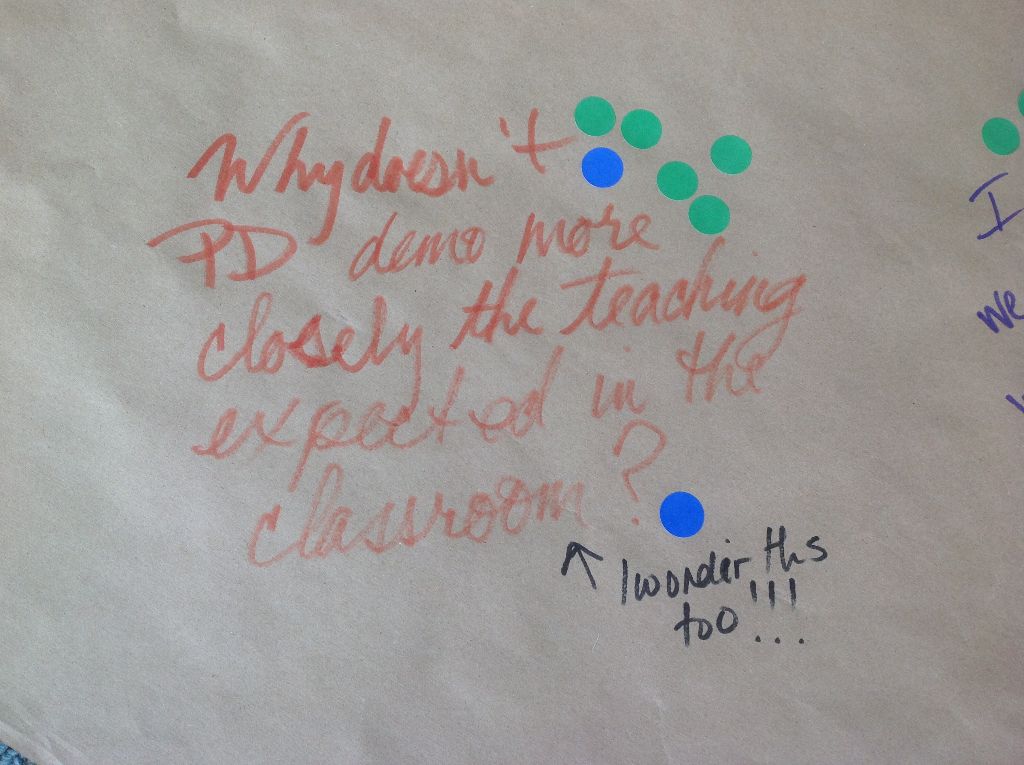 Why doesn't
PD demo more
closely the teaching
expected in the
classroom?
I wonder ths
too!!!
I
we